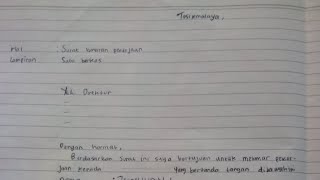 Tasikmalaya,
Hal : Surat lamaran pekerjaan
Lampiran : Satu berkas
Yth. Direktur
Dengan hormat,
Berdasarkan surat ini saya bertujuan untuk melamar peker-
jaan kepada yang bertanda tangan dibawah ini
Nama :